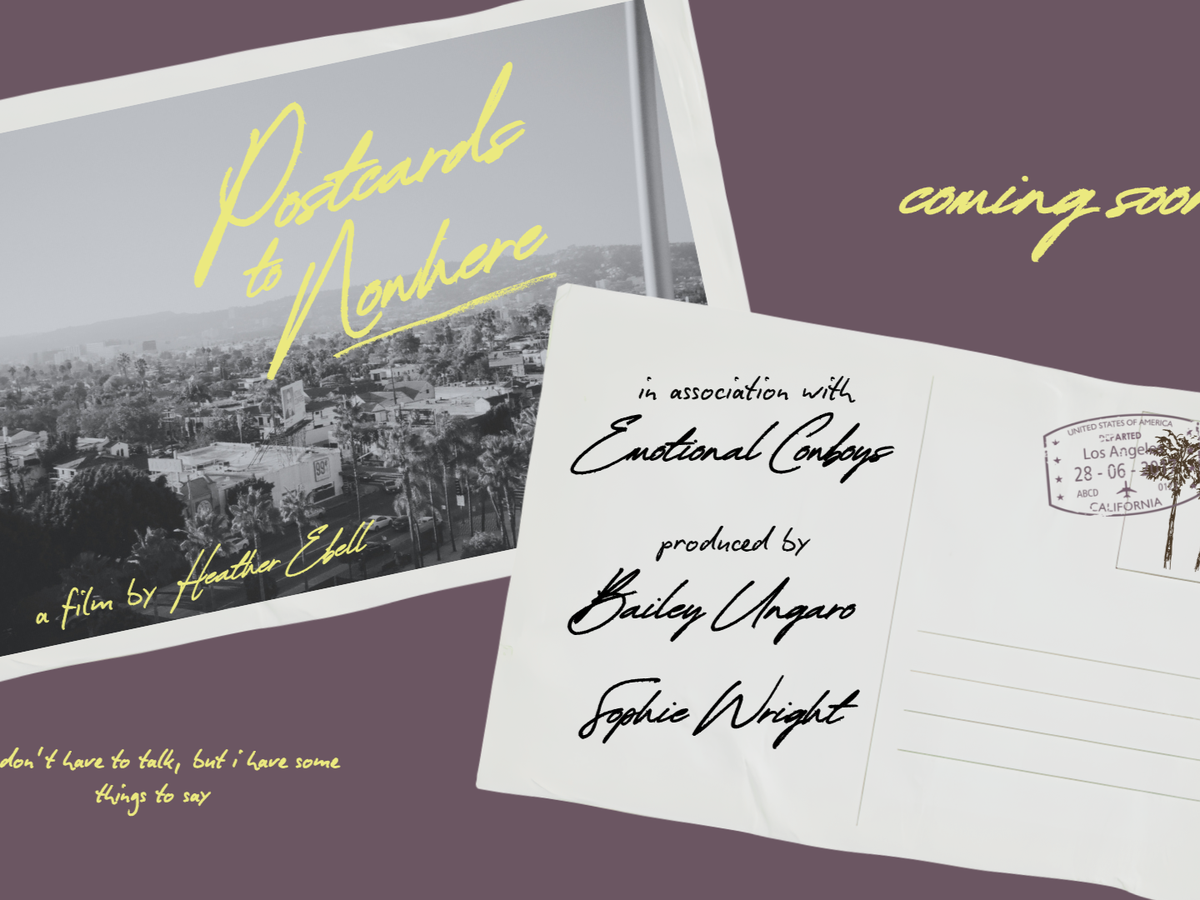 Postcards
to Nowhere
a film by Heather Ebell
coming soon
in association with
Emotional Cowboys
produced by
Bailey Ungaro
Sophie Wright
UNITED STATES OF AMERICA
DEPARTED
Los Angel
28 - 06 -
ABCD
CALIFORNIA
don't have to talk, but i have some
things to say